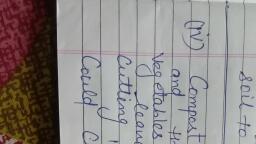 soil to
(iv) Compost
and
Vegetables
Cutting
Could C